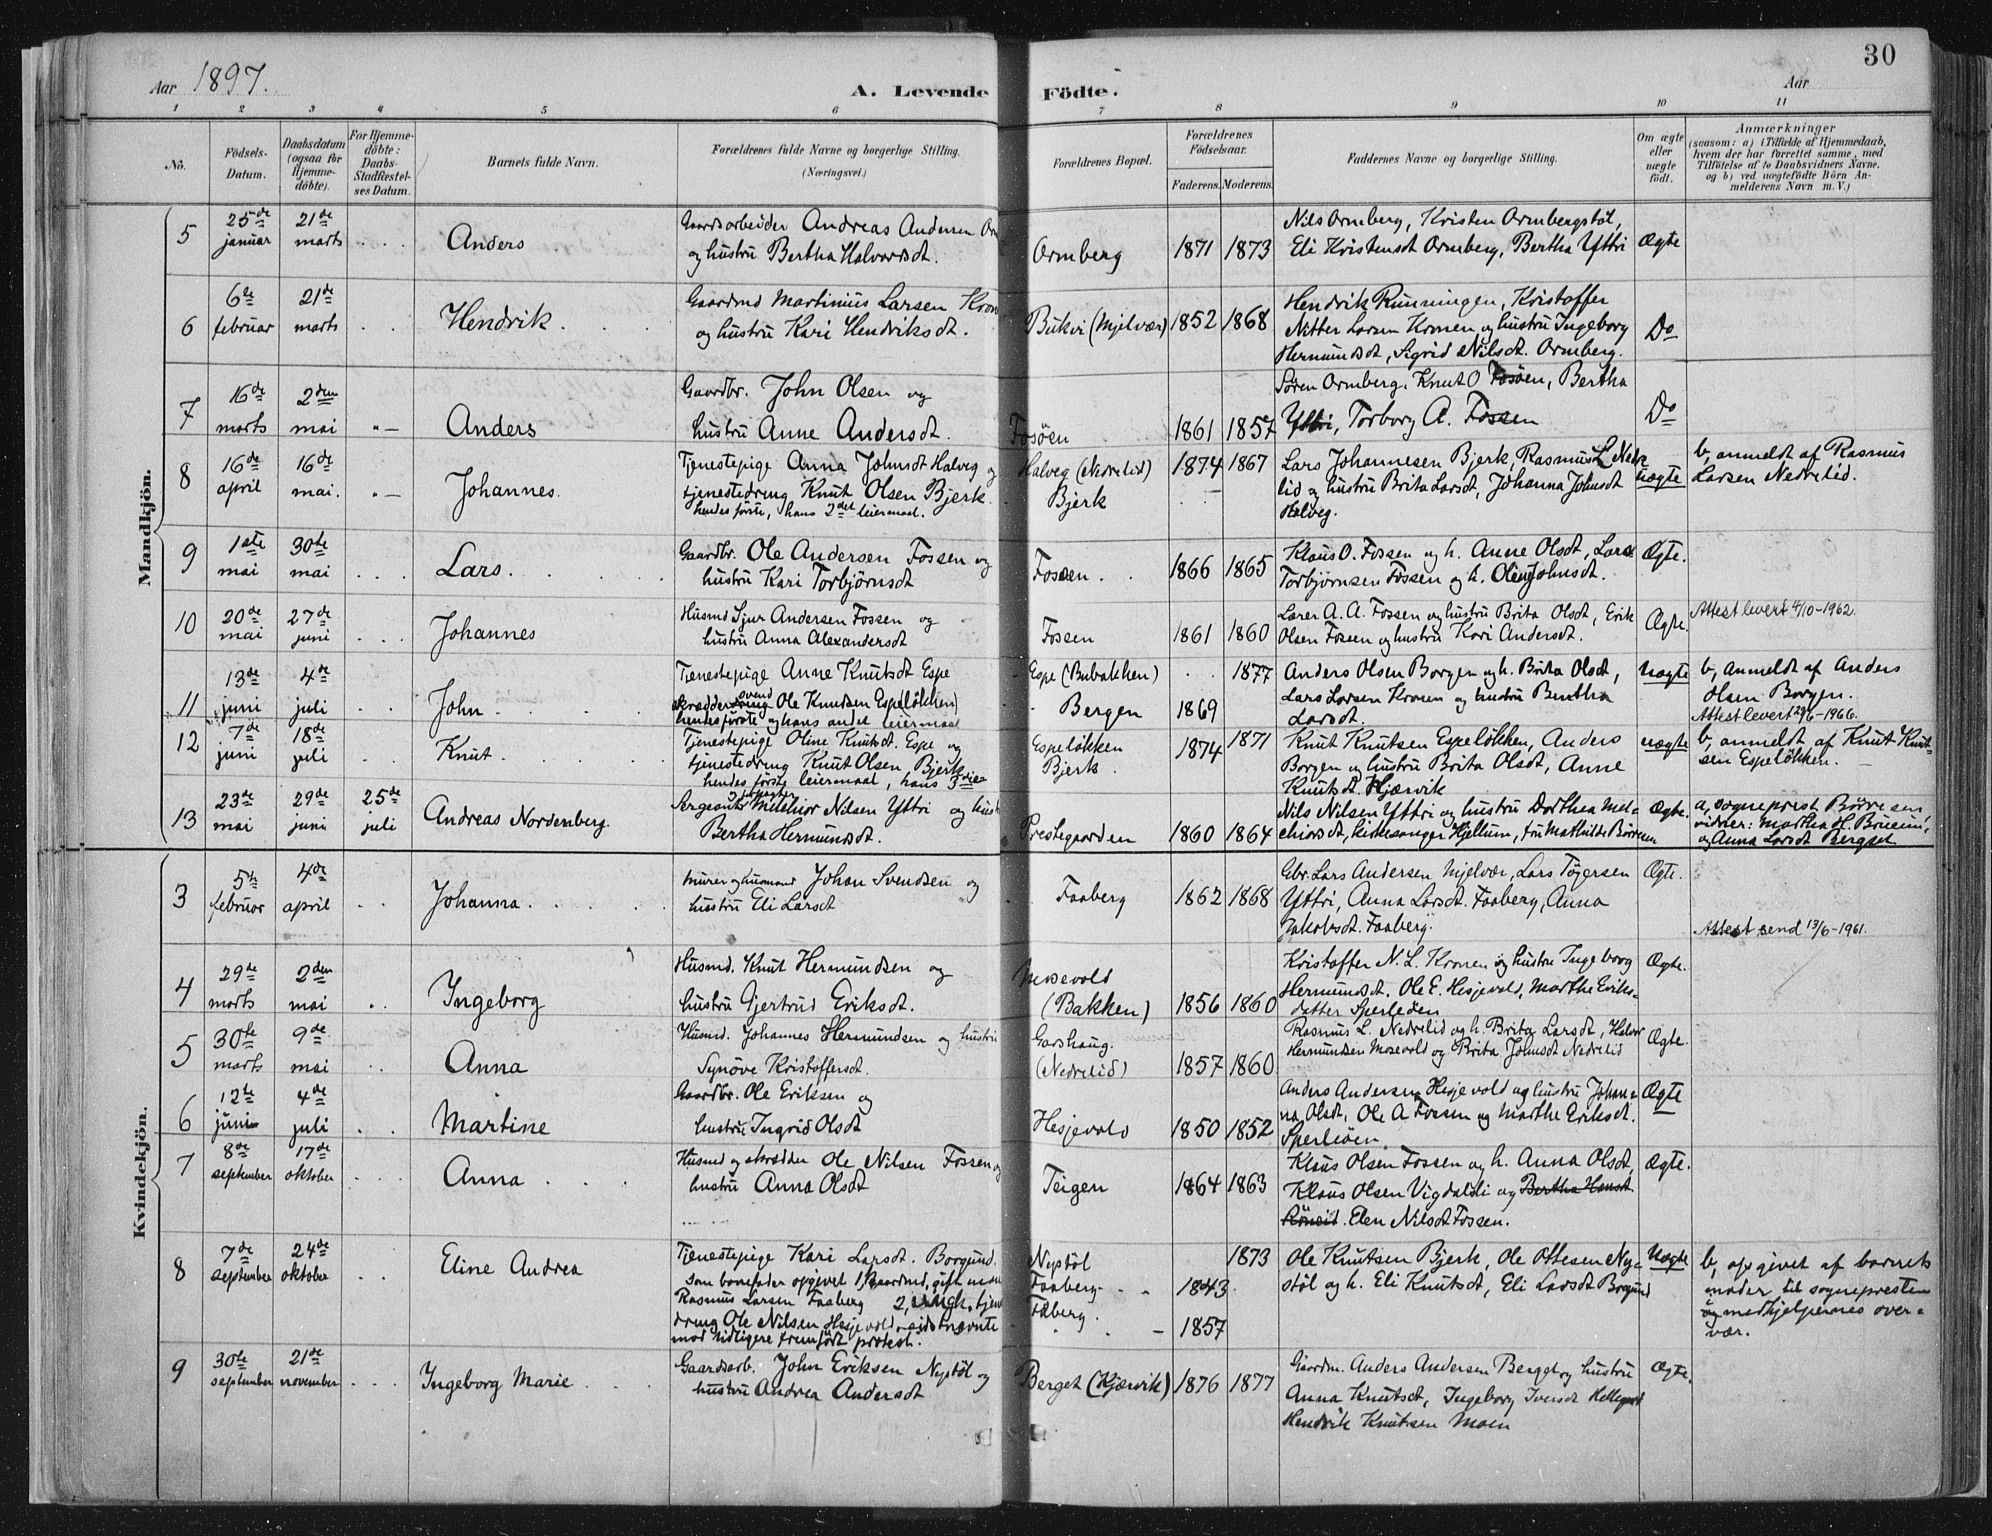 30
Aar 1897.
A. Levende Födte.
Aar
1 2 3 4 5 6 7 8 9 10 11
No.
Födsels-Datum.
Daabsdatum (ogsaa for Hjemmedöbte).
For Hjemmedöbte: Daabs-Stadfæstelses Datum.
Barnets fulde Navn.
Forældrenes fulde Navne og borgerlige Stilling. (Næringsvei.)
Forældrenes Bopæl.
Forældrenes Födselsaar.
Faderens. Moderens.
Faddernes Navne og borgerlige Stilling.
Om ægte eller uægte födt.
Anmærkninger
(saasom: a) i Tilfælde af Hjemmedaab,
hvem der har forrettet samme, med
Tilföielse af to Daabsvidners Navne.
og b) ved uægtefödte Börn An-
melderens Navn m. V.)
Mandkjön.
5 25de januar 21de marts Anders
Gaardsarbeider Andreas Andersen
og hustru Bertha Halvardsdt.
Ormberg 1871 1873
Nils Ormberg, Kristen Ormbergstøl,
Eli Kristensdt Ormberg, Bertha Yttri
Ægte
6 6te februar 21de marts Hendrik
Gaardmd Martinius Larsen Kron
og hustru Kari Hendriksdt.
Bukvi (Mjelvær) 1852 1868
Hendrik Rünningen, Kristoffer
Nitter Larsen Kronen og hustru Ingeborg
Hermundsdt, Sigrid Nilsdt. Ormberg.
Do
7 16de marts 2den mai "- Anders
Gaardbr. John Olsen og
hustru Anne Andersdt.
Fosøen 1861 1857
Søren Ormberg, Knut O Fosøen, Bertha
Yttri, Torborg A. Fossen
Do
8 16de april 16de mai. "- Johannes.
Tjenestepige Anna Johnsdt Halveg og
tjenestedreng Knut Olsen Bjerk.
hendes første, hans 2det leiermaal.
Halveg (Nedrelid)
Bjerk
1874 1867
Lars Johannesen Bjerk, Rasmus L Nedre
lid og hustru Brita Larsdt, Johanna Johnsdt
Halveg.
uægte
b, anmeldt af Rasmus
Larsen Nedrelid.
9 1ste mai 30te mai Lars.
Gaardbr. Ole Andersen Fossen og
hustru Kari Torbjørnsdt
Fossen 1866 1865
Klaus O. Fossen og h. Anne Olsdt, Lars
Torbjørnsen Fossen og h. Oline Johnsdt.
Ægte.
10 20de mai 27de juni Johannes
Husmd Sjur Andersen Fossen og
hustru Anna Alexandersdt
Fossen 1861 1860
Lærer A. A. Fossen og hustru Brita Olsdt, Erik
Olsen Fossen og hustru Kari Andersdt.
Ægte.
Attest levert 4/10-1962.
11 13de juni 4de juli John
Tjenestepige Anne Knutsdt Espe
svend
skrædder Ole Knudsen Espeløkken
hendes første og hans andet leiermaal
Espe (Bubakken)
Bergen
1869 1877
Anders Olsen Borgen og h. Brita Olsdt,
Lars Larsen Kronen og hustru Bertha
Larsdt.
Uægte
b, anmeldt af Anders
Olsen Borgen.
Attest levert 29/6-1966.
12 7de juni 18de juli Knut
Tjenestepige Oline Knutsdt. Espe og
tjenestedreng Knut Olsen Bjerk
hendes første leiermaal, hans 3die
Espeløkken
Bjerk
1874 1871
Knut Knutsen Espeløkken, Anders
Borgen og hustru Brita Olsdt, Anne
Knutsdt. Hjærvik
uægte
b, anmeldt af Knut Knut-
sen Espeløkken.
13 23de mai 29de juni 25de juli Andreas Nordenberg.
Sergeant Melchior Nilsen Yttri og hust
Bertha Hermundsdt.
Prestegaarden 1860 1864
Nils Nilsen Yttri og hustru Dorthea Mel-
chiorsdt, kirkesanger Hjellum, fru Mathilde Børresen
Ægte.
a, sogneprest Børresen
vidner: Martha H. Brueim,
og Anna Larsdt Bergset
Kvindekjön.
3 5te februar 4de april Johanna
Murer og husmand Johan Svendsen og
hustru Eli Larsdt
Faaberg 1862 1868
Gbr. Lars Andersen Mjelvær, Lars Tøgersen
Yttri, Anna Larsdt. Faaberg, Anna
Jakobsdt. Faaberg.
Ægte.
Attest send 13/6-1961.
4 29de marts 2den mai Ingeborg
Husmd. Knut Hermundsen og
hustru Gjertrud Eriksdt.
Mosevold
(Bakken)
1856 1860
Kristoffer N. L. Kronen og hustru Ingeborg
Hermundsdt. Ole E. Hesjevold, Marthe Eriks-
datter Sperleöen
Ægte.
5 30te marts 9de mai Anna
Husmd. Johannes Hermundsen og hustru
Synøve Kristoffersdt.
Garshaug.
(Nedrelid)
1857 1860
Rasmus L. Nedrelid og h. Brita Larsdt, Halvor
Hermundsen Mosevold og Brita Johnsdt Nedrelid
Ægte.
6 12te juni 4de juli Martine
Gaardbr. Ole Eriksen og
hustru Ingrid Olsdt
Hesjevold 1850 1852
Anders Andersen Hesjevold og hustru Johan-
na Olsdt, Ole A Fossen og Marthe Eriksdt.
Sperleöen.
Ægte
7 8de september 17de oktober Anna
Husmd og skrædder Ole Nilsen Fossen og
hustru Anna Olsdt
Teigen 1864 1863
Klaus Olsen Fossen og h. Anna Olsdt,
Klaus Olsen Vigdalsli og Bertha Hansdt
Röneid. Elen Nilsdt Fossen.
Ægte.
8 7de september 24de oktober Eline Andrea
Tjenestepige Kari Larsdt. Borgund.
som barnefader opgivet 1, gaardmd, gift mand
Rasmus Larsen Faaberg 2, ungk. tjen
dreng Ole Nilsen Hesjevold, sidstnævnte
mod tidligere fremført protest.
Nystöl
Faaberg
Faberg.
1843
1857
1873
Ole Knutsen Bjerk, Ole Ottesen Ny-
støl og h. Eli Knutsdt, Eli Larsdt Borgund
Uægte
b, opgivet af barnets
moder til sognepresten
og medhjelpernes over-
vær.
9 30te september 21de november Ingeborg Marie
Gaardsarb. John Eriksen Nystöl og
hustru Andrea Andersdt
Berget (Kjærvik) 1876 1877
Gaardm. Anders Andersen Berget og hustru
Anna Knutsdt, Ingeborg Iversdt
Hendrik Knutsen Moen
Ægte.